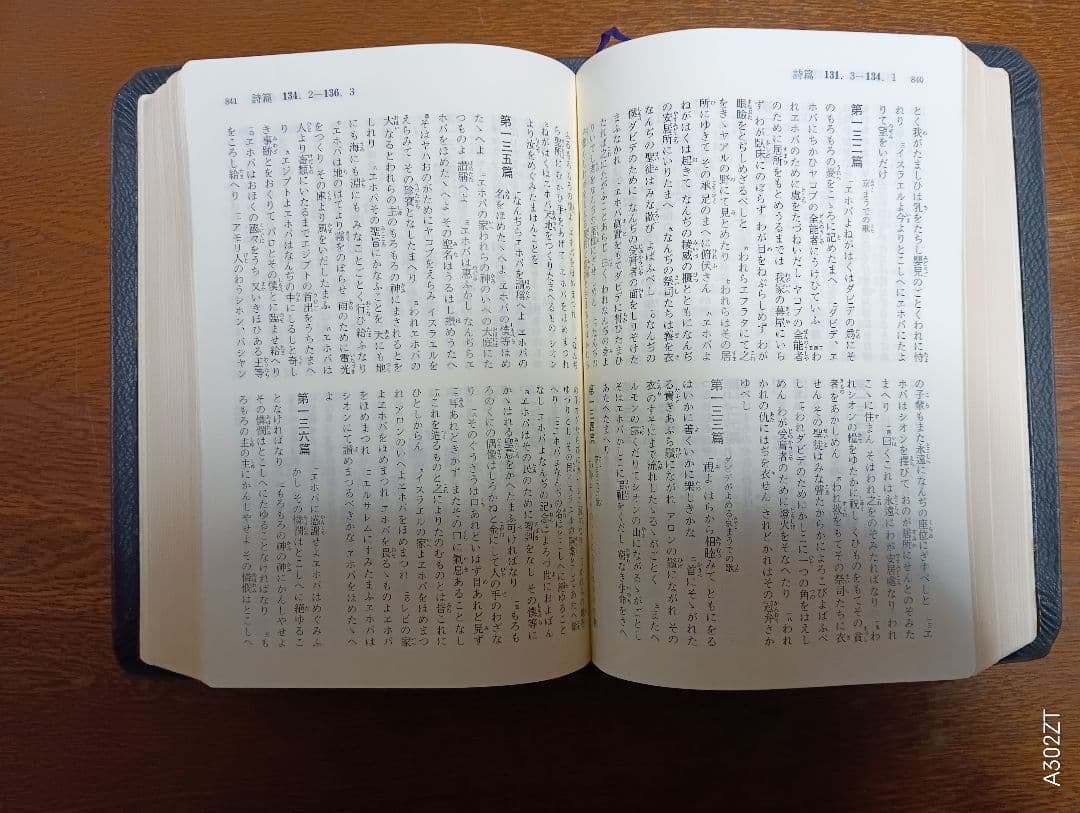 詩篇 131. 3―134. 1 840
とく我がたましひは乳をたちし嬰兒のごとくわれに恃
れり 三イスラエルよ今よりとこしへにヱホバにたよ
りて望をいだけ
第一三二篇
京まうでの歌
一ヱホバよねがはくはダビデの爲にそ
のもろもろの憂をこゝろに記めたまへ 二ダビデ、エ
ホバにちかひヤコブの全能者にうけひていふ 三われ
ヱホバのために處をたづねいだしヤコブの全能者
のために居所をもとめうるまでは 我家の幕屋にいら
ず わが臥床にのぼらず わが目をねぶらしめず わが
眼瞼をとぢしめざるべしと
われらエフラタにて之
をきゝヤアルの野にて見とめたり
われらはその居
所にゆきて その承足のまへに俯伏さん
ヱホバよ
ねがはくは起きて なんぢの稜威の櫃とともになんぢ
の安居所にいりたまへ
なんぢの祭司たちは義を衣
なんぢの聖徒はみな歡びよばふべし
なんぢの
僕ダビデのために なんぢの受膏者の面をしりぞけた
まふなかれ
の子輩もまた永遠になんぢの座位にざすべしと
ヱ
ホバはシオンを擇びて おのが居所にせんとのぞみた
まへり
曰く これは永遠にわが安居處なり われ
こゝに住まん そはわれ之をのぞみたればなり
われ
シオンの糧をゆたかに祝し くひものをもてその貧
者をあかしめん
われ救をもてその祭司たちに衣
せん その聖徒はみな聲たからかによろこびよばふべ
し
われダビデのためにかしこに一つの角をはえし
めん わが受膏者のために燈火をそなへたり
われ
かれの仇にはぢを衣せん されどかれはその冠弁さか
ゆべし
第一三三篇
ダビデがよめる京まうでの歌
視よ はらから相睦みて ともにをる
はいかに善くいかに樂しきかな
首にそゝがれた
る貴きあぶら鬚にながれ アロンの鬚にながれ その
衣のすそにまで流れしたゝるゝがごとく
またヘ
ルモンの露くだりてシオンの山にながるゝがごとし
そはヱホバかしこに福祉をくだし 窮なき生命をさへ
あたへたまへり
841 詩篇 134. 2―136. 3
なんぢら聖所にむかひ手をあげてヱホバをほめまつれ
ねがはくはヱホバ天地をつくりたまへるものシオン
より汝をめぐみたまはんことを
第一三五篇
なんぢらヱホバを讃稱へよ ヱホバの
名をほめたゝへよ ヱホバの僕等ほめ
たゝへよ
ヱホバの家われらの神のいへの大庭にた
つものよ 讃稱へよ
ヱホバは惠ふかし なんぢらヱ
ホバをほめたゝへよ その聖名はうるはし讃めうたへ
そはヤハおのがためにヤコブをえらみ イスラエルを
えらみてその珍寶となしたまへり
われヱホバの
大なるとわれらの主のもろもろの神にまされるとを
しれり
ヱホバその聖旨にかなふことを 天にも地
にも海にも淵にも みなことごとく行ひ給ふなり
ヱホバは地のはてより霧をのぼらせ 雨のために電光
をつくり その庫より風をいだしたまふ
ヱホバは
人より畜類にいたるまでエジプトの首出をうちたまへ
り
エジプトよ ヱホバはなんぢの中にしるしと奇し
き事跡とをおくりて パロとその僕とに臨ませ給へり
ヱホバはおほくの國々をうち 又いきほひある王等
をころし給へり
アモリ人のわうシホン、バシヤン
なし ヱホバよなんぢの記念はよろづ世におよばん
ヱホバはその民のために審判をなし その僕等に
かゝはれる聖意をかへたまふ可ければなり
もろも
ろのくにの偶像はしろかねと金にして 人の手のわざな
り
そのくうざうは口あれどいはず 目あれど見ず
耳あれどきかず またその口に氣息あることなし
これを造るものと之によりたのむものとは皆これに
ひとしからん
イスラエルの家よヱホバをほめまつ
れ アロンのいへよヱホバをほめまつれ
レビの家
よヱホバをほめまつれ ヱホバを畏るゝものよヱホバ
をほめまつれ
エルサレムにすみたまふヱホバは
シオンにて讃めまつるべきかな ヱホバをほめたゝへ
よ
第一三六篇
ヱホバに感謝せよ ヱホバはめぐみふ
かし その憐憫はとこしへに絶ゆるこ
となければなり
もろもろの神の神にかんしやせよ
その憐憫はとこしへにたゆることなければなり
も
ろもろの主の主にかんしやせよ その憐憫はとこしへ
A302ZT